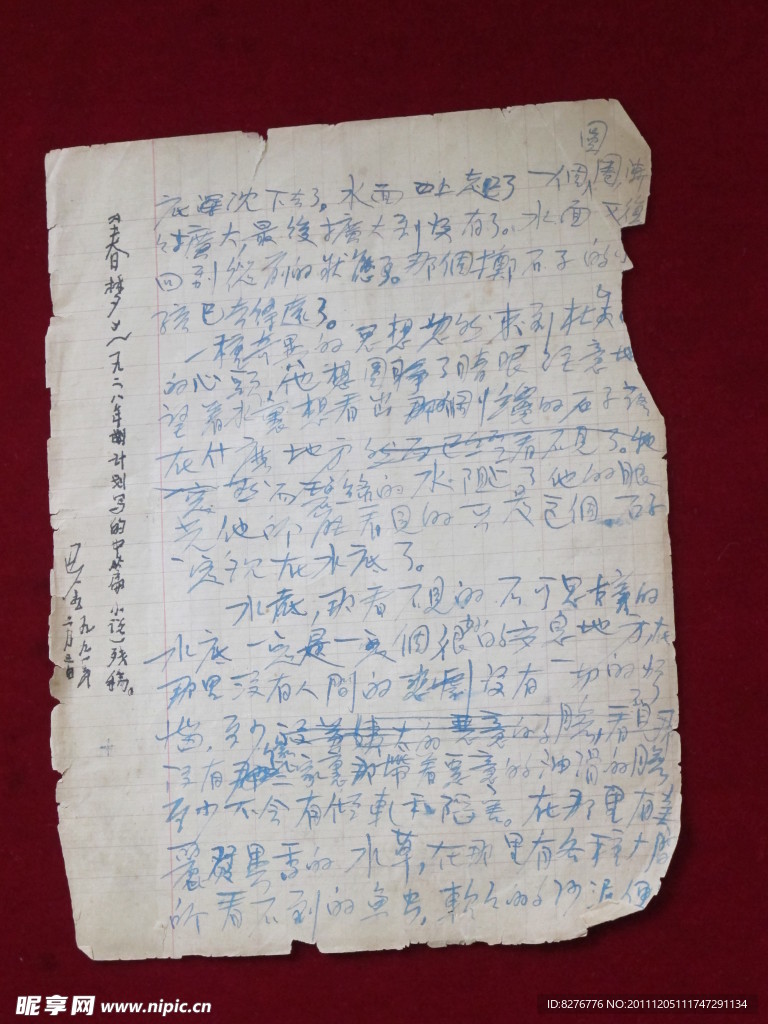 圓
底深沈下去了。水面上起了一個圓圈
擴大，最後擴大到沒有了。水面又復
回到從前的狀態了。那個擲石子的小
孩已走得遠了。
一種奇異的思想忽然來到杜
的心頭，他想圓睜了睛眼注意地
望着水裏想看出那個小的石子
在什麼地方
然而碧綠的水阻止了他的眼
光，他所能看見的只是這個石子
沉在水底了。
水底，那看不見的不可思議的
水底一定是一個很好的安息地方在
那里沒有人間的悲劇沒有一切的煩
惱，至少的臉，看
沒有那的油滑的臉
至少不會有傾軋和陷害。在那里有美
麗的水草，在那里有各種
所看不到的魚虫，軟的的沙泥
《春梦》一九二八年計划写的中篇小说）残稿。
巴金 九一年
二月三日
昵享网 www.nipic.cn
ID:8276776 NO:20111205111747291134